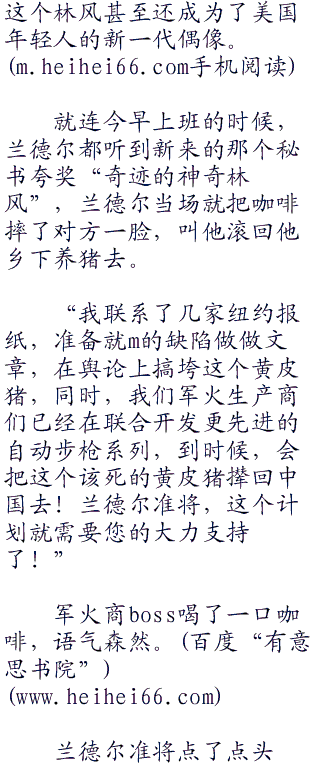 这个林风甚至还成为了美国
年轻人的新一代偶像。
(m.heihei66.com手机阅读)
就连今早上班的时候，
兰德尔都听到新来的那个秘
书夸奖“奇迹的神奇林
风”，兰德尔当场就把咖啡
摔了对方一脸，叫他滚回他
乡下养猪去。
“我联系了几家纽约报
纸，准备就m的缺陷做做文
章，在舆论上搞垮这个黄皮
猪，同时，我们军火生产商
们已经在联合开发更先进的
自动步枪系列，到时候，会
把这个该死的黄皮猪撵回中
国去！兰德尔准将，这个计
划就需要您的大力支持
了！”
军火商boss喝了一口咖
啡，语气森然。(百度“有意
思书院”)
(www.heihei66.com)
兰德尔准将点了点头